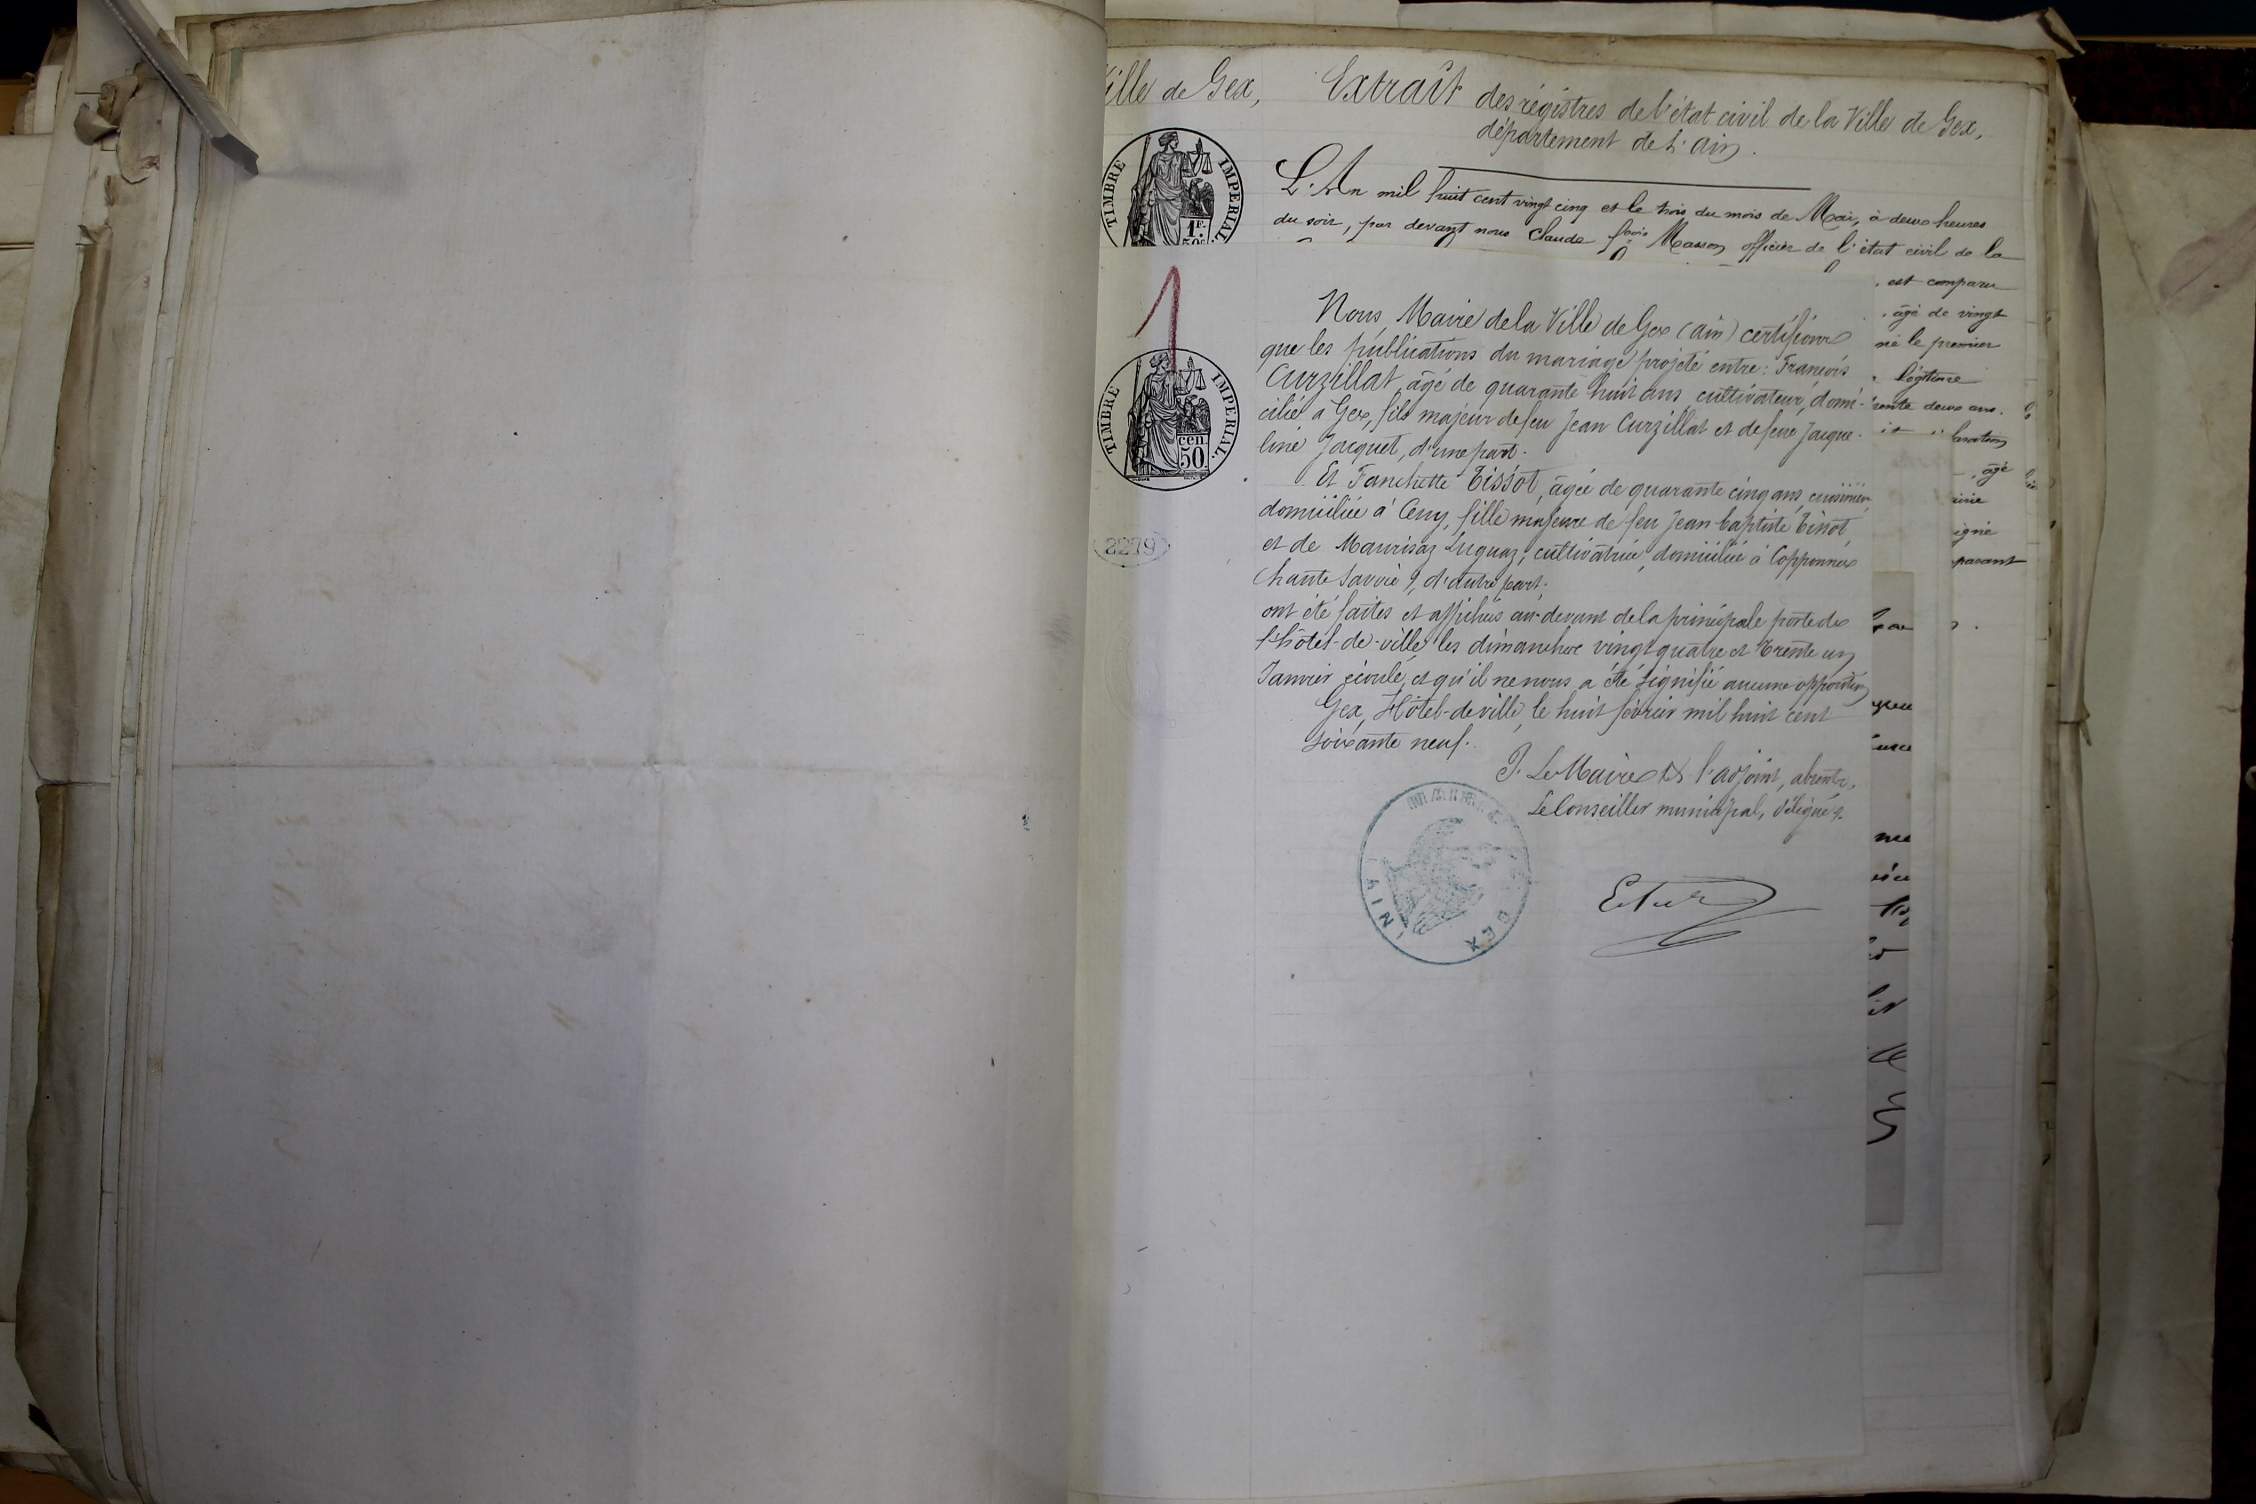 Ville de Gex,
Extrait des régistres de l'état civil de la Ville de Gex,
département de l'ain.
TIMBRE IMPERIAL.
1F.
50c
L'An mil huit cent vingt cinq et le trois du mois de Mai, à deux heures
du soir, par devant nous Claude fçois Masson officier de l'état civil de la
est comparu
âgé de vingt
né le premier
légitime
trente deux ans.
âgé
parant
1
TIMBRE IMPERIAL.
cen
50
2279
Nous Maire de la Ville de Gex (ain) certifions
que les publications du mariage projeté entre: François
Curzillat, âgé de quarante huit ans cultivateur, domi-
cilié à Gex, fils majeur de feu Jean Curzillat et de feue Jacque-
line Jacquet, d'une part.
Et Fanchette Tissot, âgée de quarante cinq ans, cuisinière
domiciliée à Cessy, fille majeure de feu Jean baptiste Tissot,
et de Maurisaz Luquaz, cultivatrice, domiciliée à Copponnex
(haute Savoie), d'autre part;
ont été faites et affichés au-devant de la principale porte de
l'hôtel-de-ville les dimanches vingt quatre et trente un
Janvier écoulé, et qu'il ne nous a été signifié aucune opposition
Gex, Hôtel-de ville, le huit février mil huit cent
soixante neuf.
P. Le Maire & l'adjoint, absents,
Le Conseiller municipal, délégué.
GEX
AIN